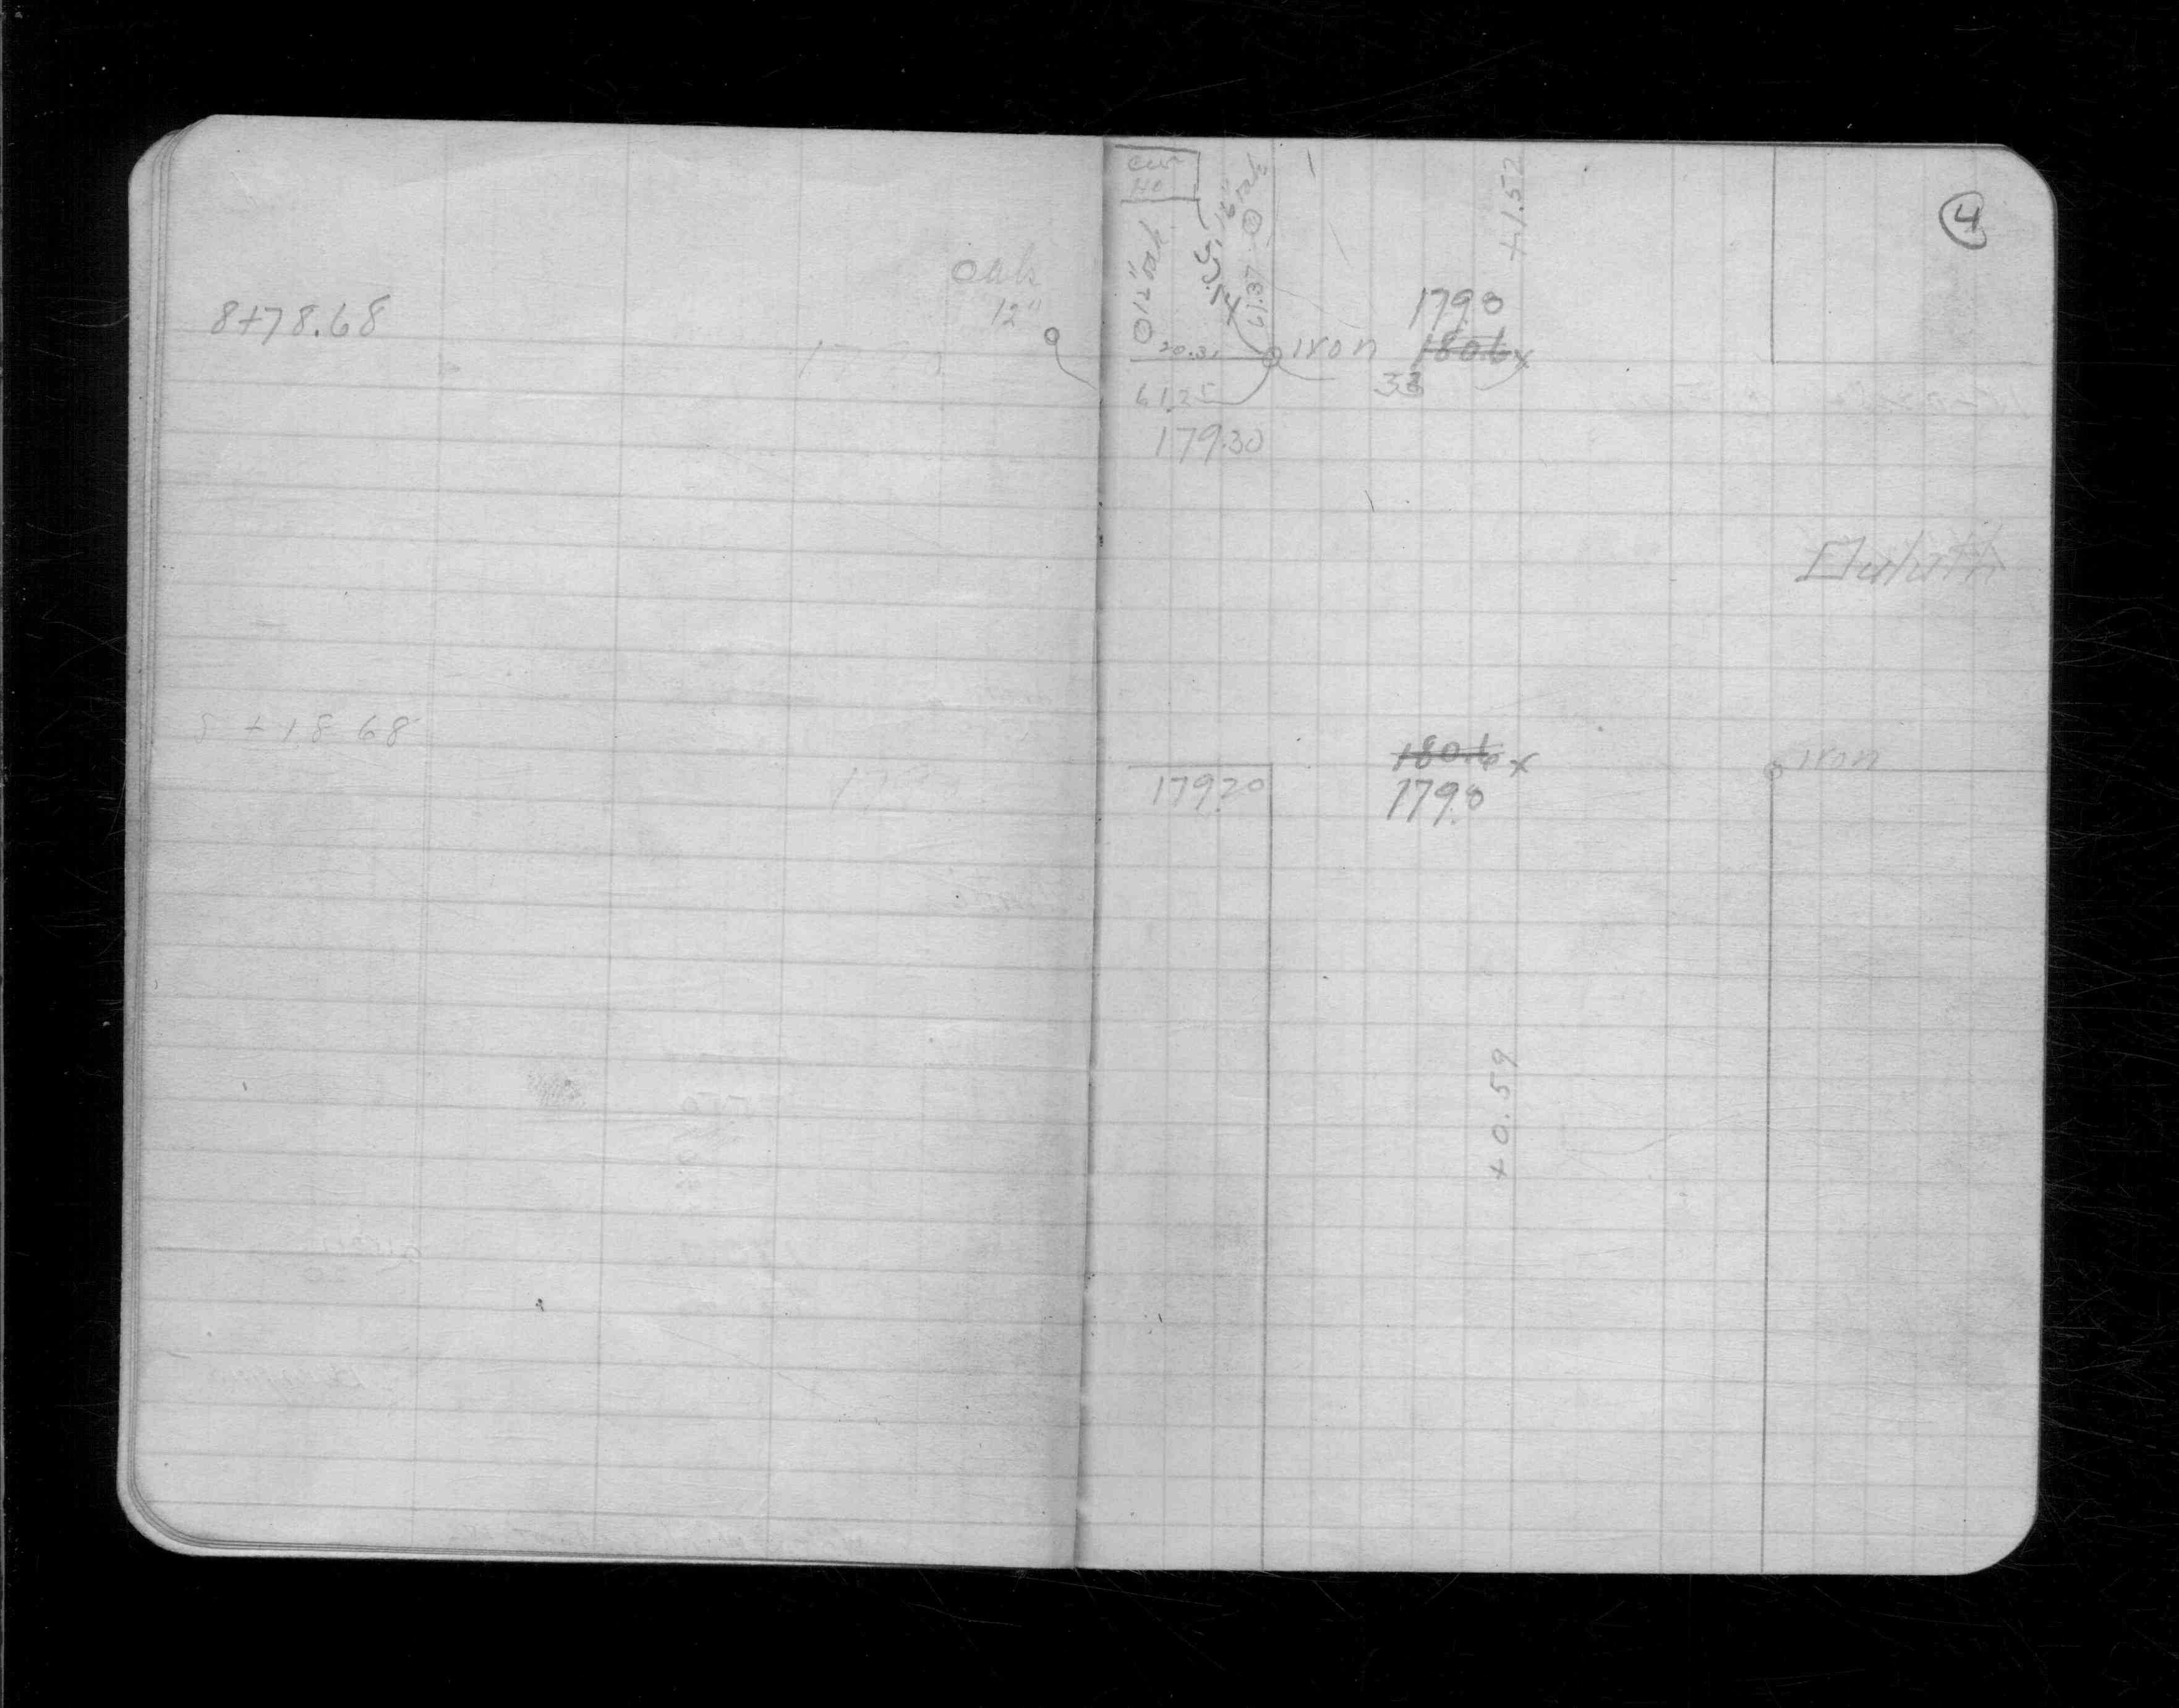 8+78.68
oak
12"
8 + 18 68
4
12" oak
16" oak
61.37
+1.52
179.8
iron 180.6 x
33
61.25
179.30
Duluth
180.6 x
iron
179.20
179.8
+0.59